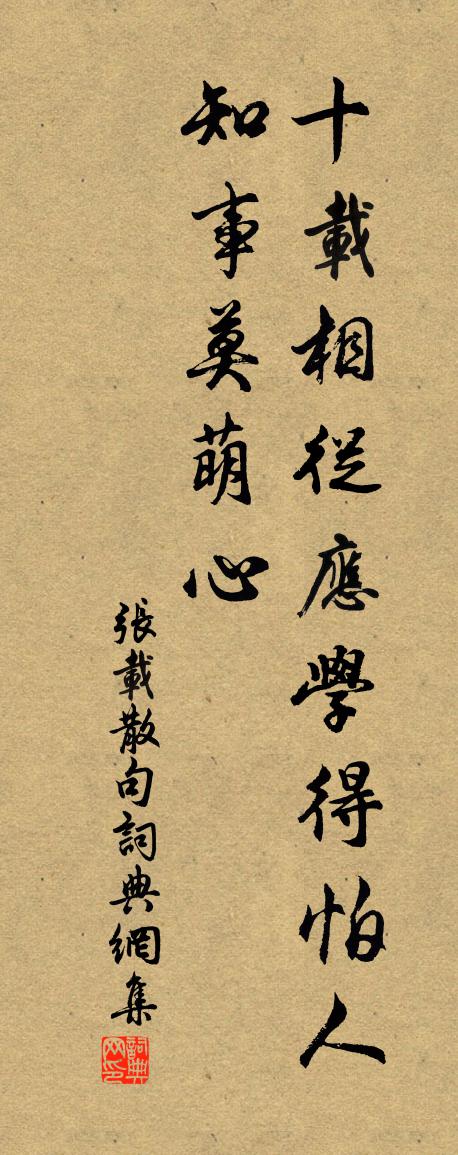 十載相從應學得怕人
知事莫萌心
張載散句詞典網集
詞典
网印